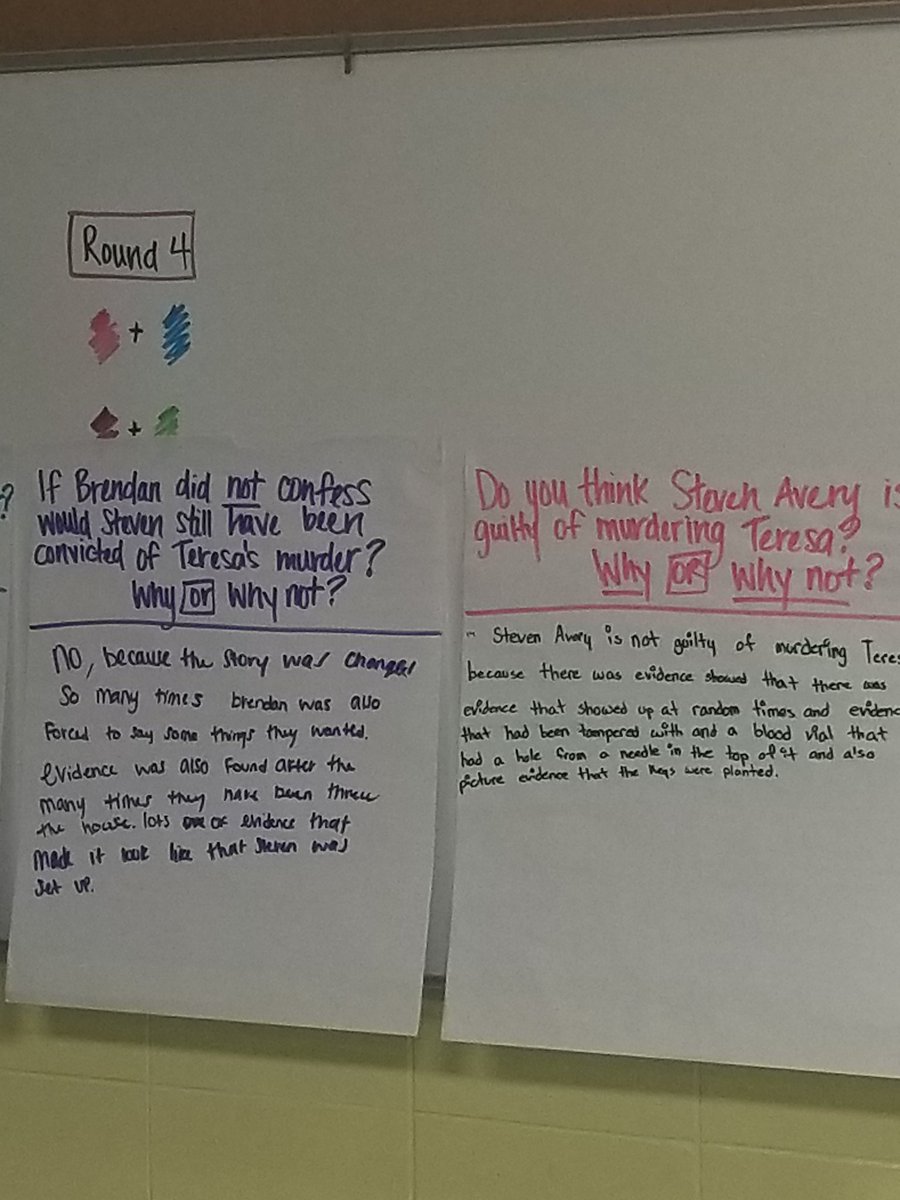 Round 4
+
+
?
If Brendan did not confess
would Steven still have been
convicted of Teresa's murder?
Why or Why not?
NO, because the story was changes
So many times brendan was also
Forced to say some things they wanted.
evidence was also found after the
many times they have been threw
the house. lots of evidence that
made it look like that Steven was
set up.
Do you think Steven Avery is
guilty of murdering Teresa?
Why or Why not?
- Steven Avery is not guilty of murdering Teres
because there was evidence showed that there was
evidence that showed up at random times and evidenc
that had been tampered with and a blood vial that
had a hole from a needle in the top of it and also
picture evidence that the keys were planted.